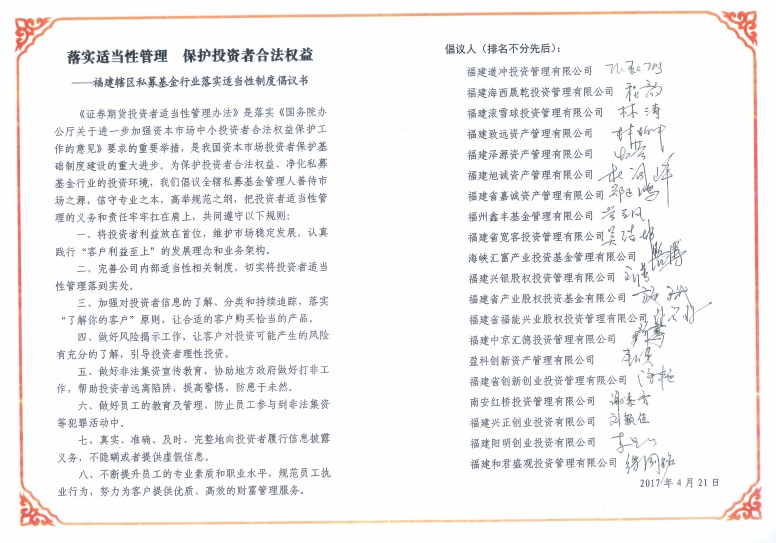 落实适当性管理　保护投资者合法权益
——福建辖区私募基金行业落实适当性制度倡议书
《证券期货投资者适当性管理办法》是落实《国务院办
公厅关于进一步加强资本市场中小投资者合法权益保护工
作的意见》要求的重要举措，是我国资本市场投资者保护基
础制度建设的重大进步。为保护投资者合法权益、净化私募
基金行业的投资环境，我们倡议全辖私募基金管理人善待市
场之源，信守专业之本，高举规范之纲，把投资者适当性管
理的义务和责任牢牢扛在肩上，共同遵守以下规则：
一、将投资者利益放在首位，维护市场稳定发展，认真
践行“客户利益至上”的发展理念和业务架构。
二、完善公司内部适当性相关制度，切实将投资者适当
性管理落到实处。
三、加强对投资者信息的了解、分类和持续追踪，落实
“了解你的客户”原则，让合适的客户购买恰当的产品。
四、做好风险揭示工作，让客户对投资可能产生的风险
有充分的了解，引导投资者理性投资。
五、做好非法集资宣传教育，协助地方政府做好打非工
作，帮助投资者远离陷阱，提高警惕，防患于未然。
六、做好员工的教育及管理，防止员工参与到非法集资
等犯罪活动中。
七、真实、准确、及时、完整地向投资者履行信息披露
义务，不隐瞒或者提供虚假信息。
八、不断提升员工的专业素质和职业水平，规范员工执
业行为，努力为客户提供优质、高效的财富管理服务。
倡议人（排名不分先后）：
福建道冲投资管理有限公司
福建海西晟乾投资管理有限公司
福建滚雪球投资管理有限公司 林涛
福建致远资产管理有限公司
福建泽源资产管理有限公司
福建旭诚资产管理有限公司
福建省嘉诚资产管理有限公司
福州鑫丰基金管理有限公司
福建省宽客投资管理有限公司
海峡汇富产业投资基金管理有限公司
福建兴银股权投资管理有限公司
福建省产业股权投资基金有限公司
福建省福能兴业股权投资管理有限公司
福建中京汇德投资管理有限公司
盈科创新资产管理有限公司
福建省创新创业投资管理有限公司
南安红桥投资管理有限公司
福建兴正创业投资有限公司 刘颖佳
福建阳明创业投资有限公司
福建和君盛观投资管理有限公司
2017 年 4 月 21 日